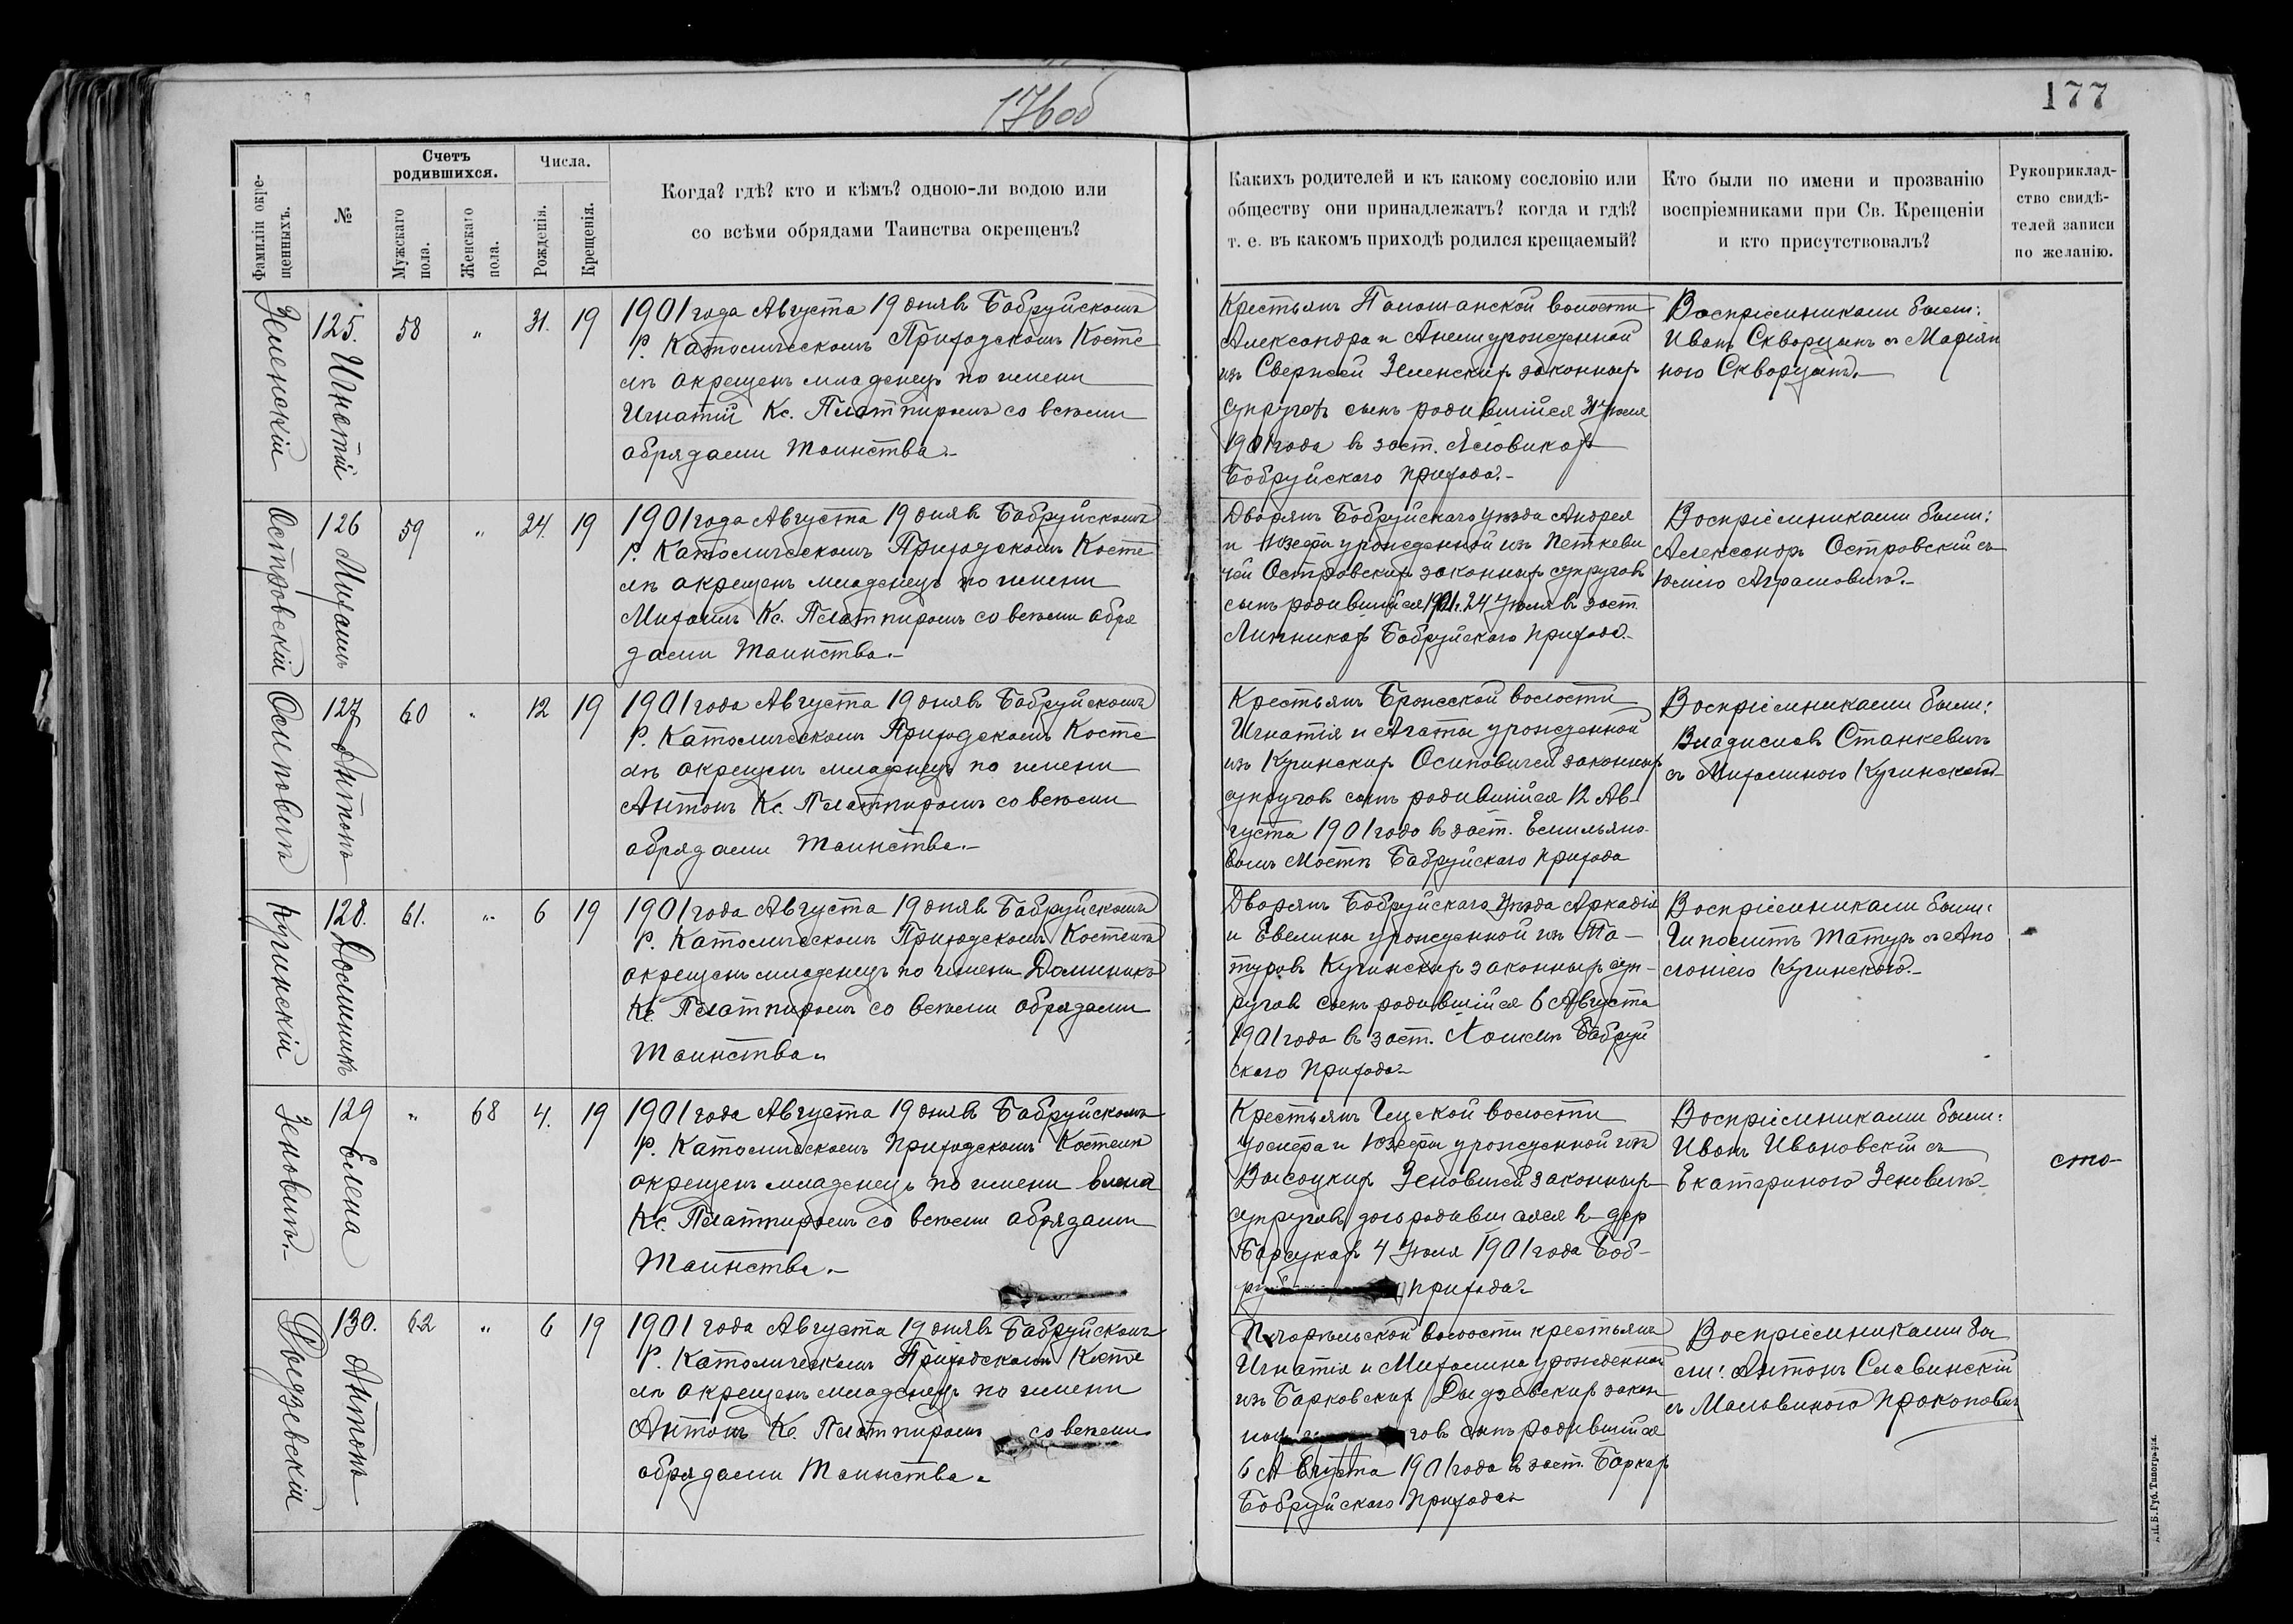 176об
177
Фамиліи окрещенныхъ.
№
Счетъ родившихся.
Мужскаго пола.
Женскаго пола.
Числа.
Рожденія.
Крещенія.
Когда? гдѣ? кто и кѣмъ? одною-ли водою или
со всѣми обрядами Таинства окрещенъ?
Какихъ родителей и къ какому сословію или
обществу они принадлежатъ? когда и гдѣ?
т. е. въ какомъ приходѣ родился крещаемый?
Кто были по имени и прозванію
воспріемниками при Св. Крещеніи
и кто присутствовалъ?
Рукоприклад-
ство свидѣ-
телей записи
по желанію.
Зеленскій
125. Игнатій
58
"
31.
19
1901 года Августа 19 дня въ Бобруйскомъ
Р. Католическомъ Приходскомъ Косте
лѣ окрещенъ младенецъ по имени
Игнатій Кс. Плятпиромъ со всѣми
обрядами Таинства.-
Крестьянъ волости
Александра и урожденной
изъ Зеленскихъ законныхъ
супруговъ сынъ родившійся 31 Іюля
1901 года въ заст.
Бобруйскаго прихода.-
Воспріемниками были:
Иванъ Скворцынъ съ Маріан
ною Скворцынъ.-
Островскій
126 Михаилъ
59
"
24.
19
1901 года Августа 19 дня въ Бобруйскомъ
Р. Католическомъ Приходскомъ Косте
лѣ окрещенъ младенецъ по имени
Михаилъ Кс. Плятпиромъ со всѣми обря
дами Таинства.-
Дворянъ Бобруйскаго уѣзда Андрея
и Юзефы урожденной изъ Петкеви
чей Островскихъ законныхъ супруговъ
сынъ родившійся 1901 г. 24 Іюля въ заст.
Липникахъ Бобруйскаго прихода.-
Воспріемниками были:
Александръ Островскій съ
Юліею
Осиповичъ
127 Антонъ
60
"
12
19
1901 года Августа 19 дня въ Бобруйскомъ
Р. Католическомъ Приходскомъ Косте
лѣ окрещенъ младенецъ по имени
Антонъ Кс. Плятпиромъ со всѣми
обрядами Таинства.-
Крестьянъ Брожской волости
Игнатія и Агаты урожденной
изъ Кучинскихъ Осиповичей законныхъ
супруговъ сынъ родившійся 12 Ав-
густа 1901 года въ заст. Емильяно-
вомъ Мостѣ Бобруйскаго прихода
Воспріемниками были:
Владиславъ Станкевичъ
съ Михалиною Кучинскою
Кучинскій
128. Доминикъ
61.
"
6
19
1901 года Августа 19 дня въ Бобруйскомъ
Р. Католическомъ Приходскомъ Костелѣ
окрещенъ младенецъ по имени Доминикъ
Кс. Плятпиромъ со всѣми обрядами
Таинства.
Дворянъ Бобруйскаго Уѣзда Аркадія
и Евелины урожденной изъ Та-
туровъ Кучинскихъ законныхъ суп-
руговъ сынъ родившійся 6 Августа
1901 года въ заст. Бобруй
скаго прихода
Воспріемниками были:
Ипполитъ Татуръ съ Апо
лоніею Кучинскою.-
Зеновичъ.-
129 Елена
"
68
4.
19
1901 года Августа 19 дня въ Бобруйскомъ
Р. Католическомъ Приходскомъ Костелѣ
окрещенъ младенецъ по имени Елена
Кс. Плятпиромъ со всѣми обрядами
Таинства.-
Крестьянъ волости
Іосифа и Юзефы урожденной изъ
Высоцкихъ Зеновичей законныхъ
супруговъ дочь родившаяся въ дер
Барсукахъ 4 Іюля 1901 года Боб-
руй прихода
Воспріемниками были:
Иванъ Ивановскій съ
Екатериною Зеновичъ.-
Дыдзевскій
130. Антонъ
62
"
6
19
1901 года Августа 19 дня въ Бобруйскомъ
Р. Католическомъ Приходскомъ Косте
лѣ окрещенъ младенецъ по имени
Антонъ Кс. Плятпиромъ со всѣми
обрядами Таинства.
волости крестьянъ
Игнатія и Михалины урожденной
изъ Барковскихъ Дыдзевскихъ закон
ныхъ говъ сынъ родившійся
6 Августа 1901 года въ заст. Боркахъ
Бобруйскаго прихода
Воспріемниками бы
ли: Антонъ Славинскій
съ Мальвиною Прокоповичъ